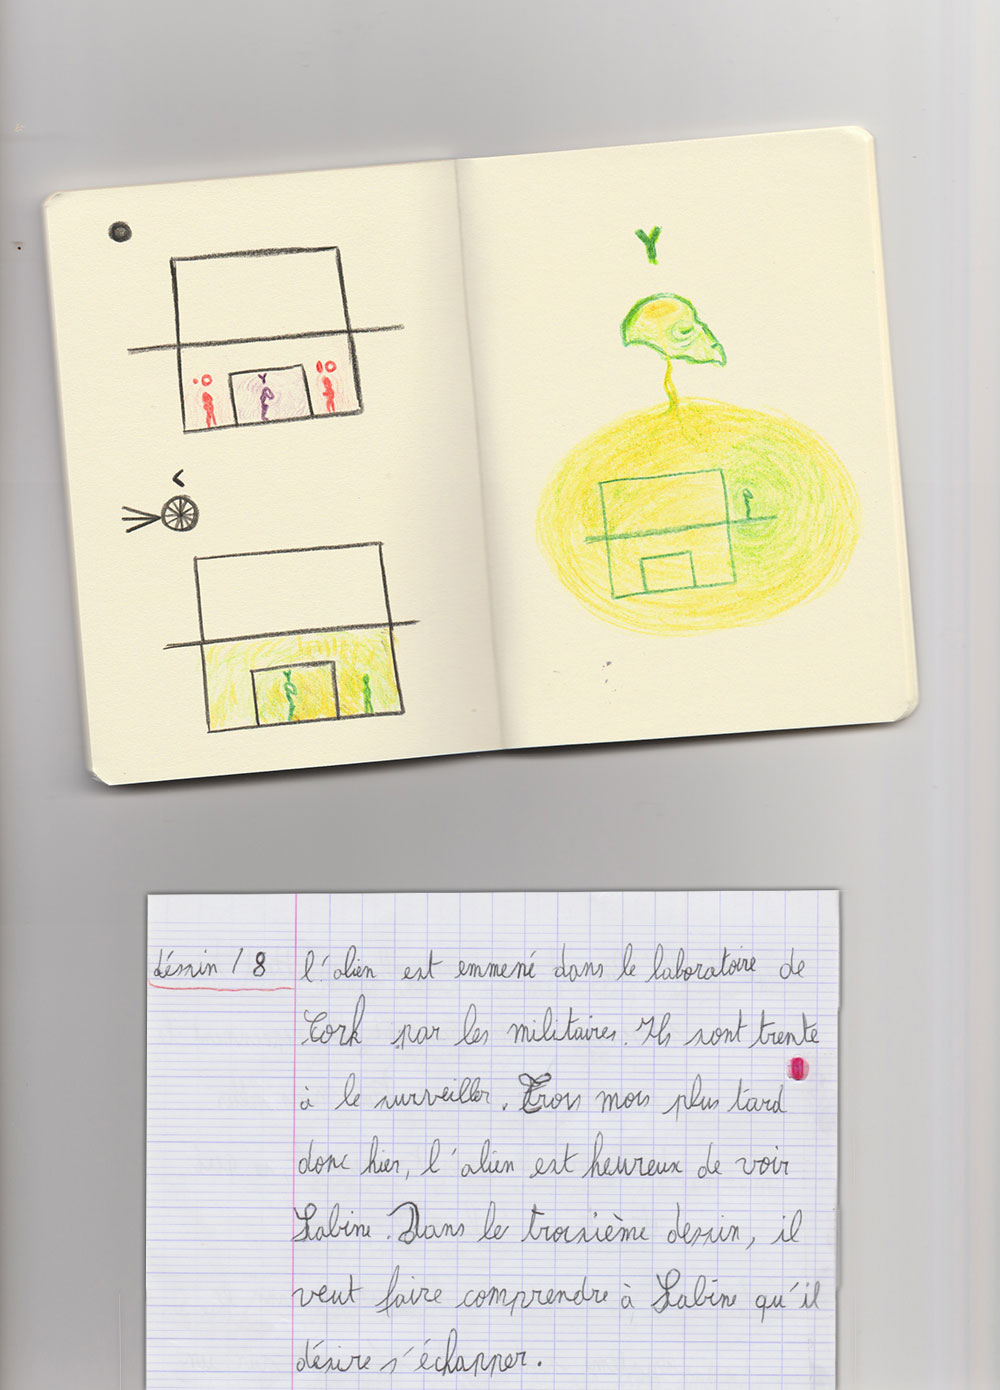 Y
Y
<
Y
déssin / 8
l'alien est emmené dans le laboratoire de
Cork par les militaires. Ils sont trente
à le surveiller. Trois mois plus tard
donc hier, l'alien est heureux de voir
Sabine. Dans le troisième dessin, il
veut faire comprendre à Sabine qu'il
désire s'échapper.